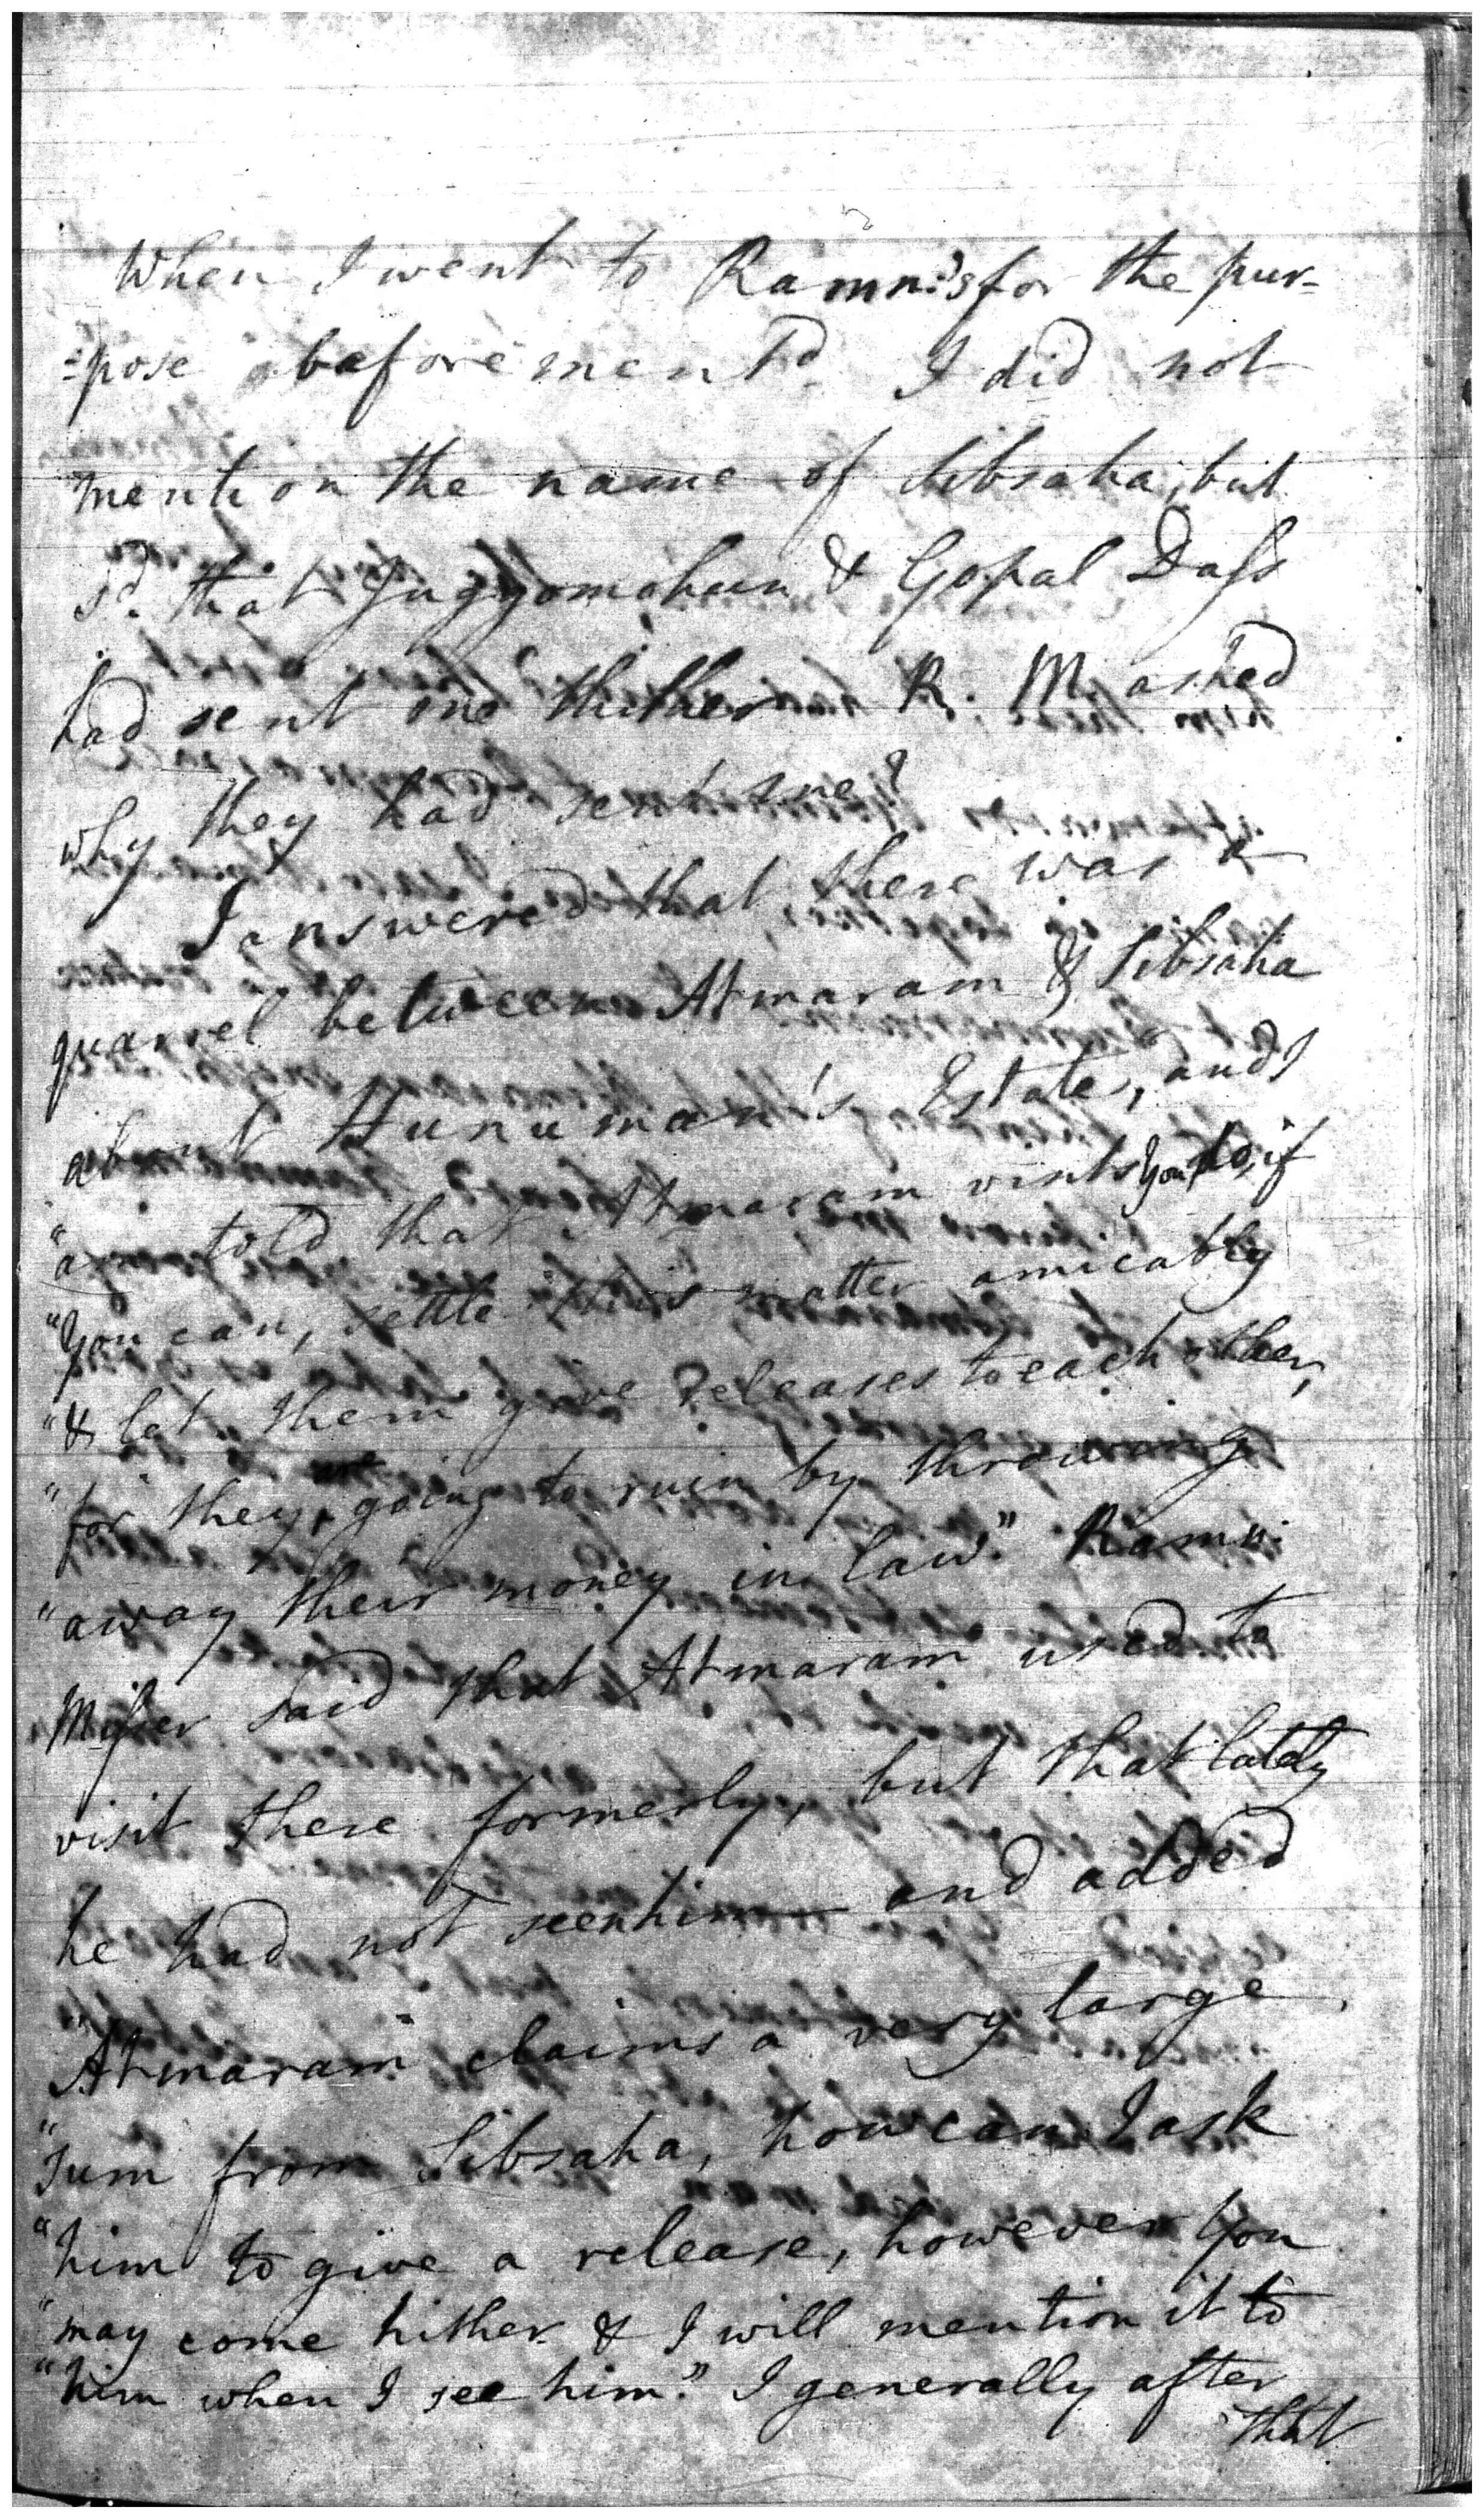 When I went to Ramn:'s for the pur=
=pose beforement'd. I did not
mention the name of Sibsaha, but
s'd. that Juggomohun & Gopal Dass
had sent me thither R. M. asked
why they had sent me?
I answered that there was a
quarrel between Atmaram & Sibsaha
about Hunuman's Estate, and I
"am told that Atmaram visits you do, if
"you can, settle this matter amicably
"& let them give releases to each other,
"for they are going to ruin by throwing
"away their money in law." Ramn:
Misser said that Atmaram used to
visit there formerly, but that lately
he had not seen him — and added
"Atmaram claims a very large
"sum from Sibsaha, how can I ask
"him to give a release, however you
"may come hither & I will mention it to
"him when I see him." I generally after
that